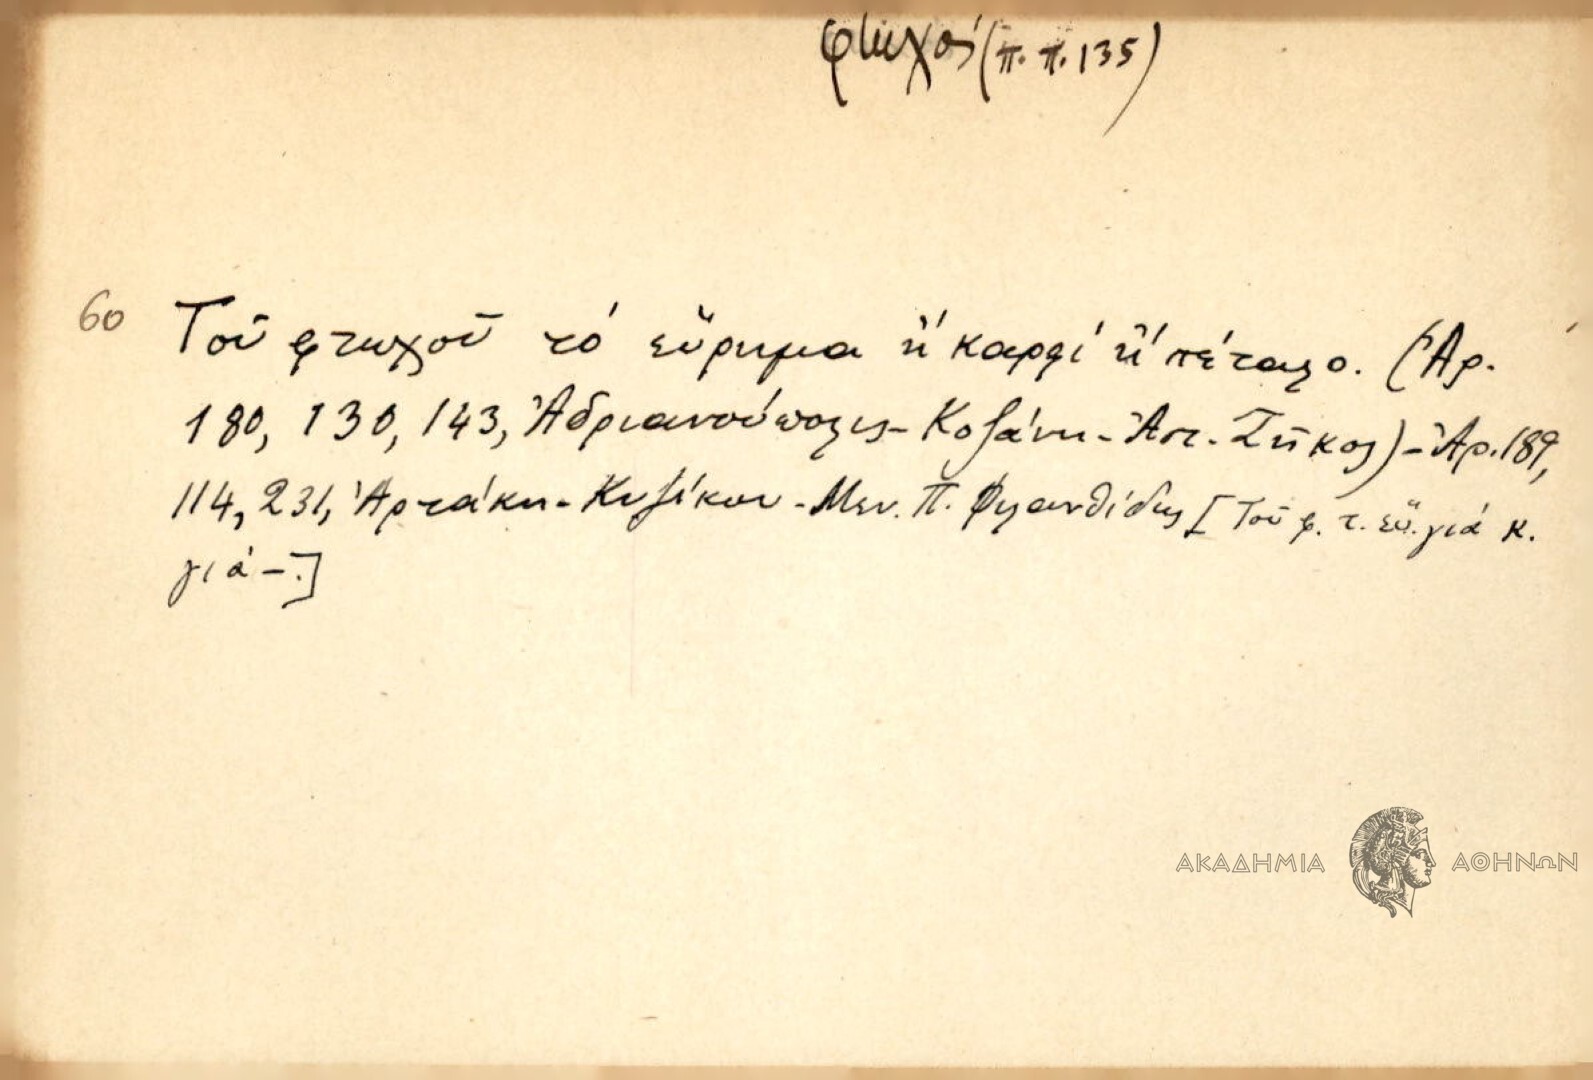 φτωχός (π. π. 135)
60 Τοῦ φτωχοῦ τό εὕρημα ἤ καρφί ἤ πέταλο. (Ἀρ.
180, 130, 143, Ἀδριανούπολις - Κοζάνη - Ἀπ. Ζῆκος) - Ἀρ. 189,
114, 231, Ἀρτάκη - Κυζίκου - Μεν. Π. Φιλανθίδης [Τοῦ φ. τ. εὕ. γιά κ.
γιά -.]
ΑΚΑΔΗΜΙΑ ΑΘΗΝΩΝ